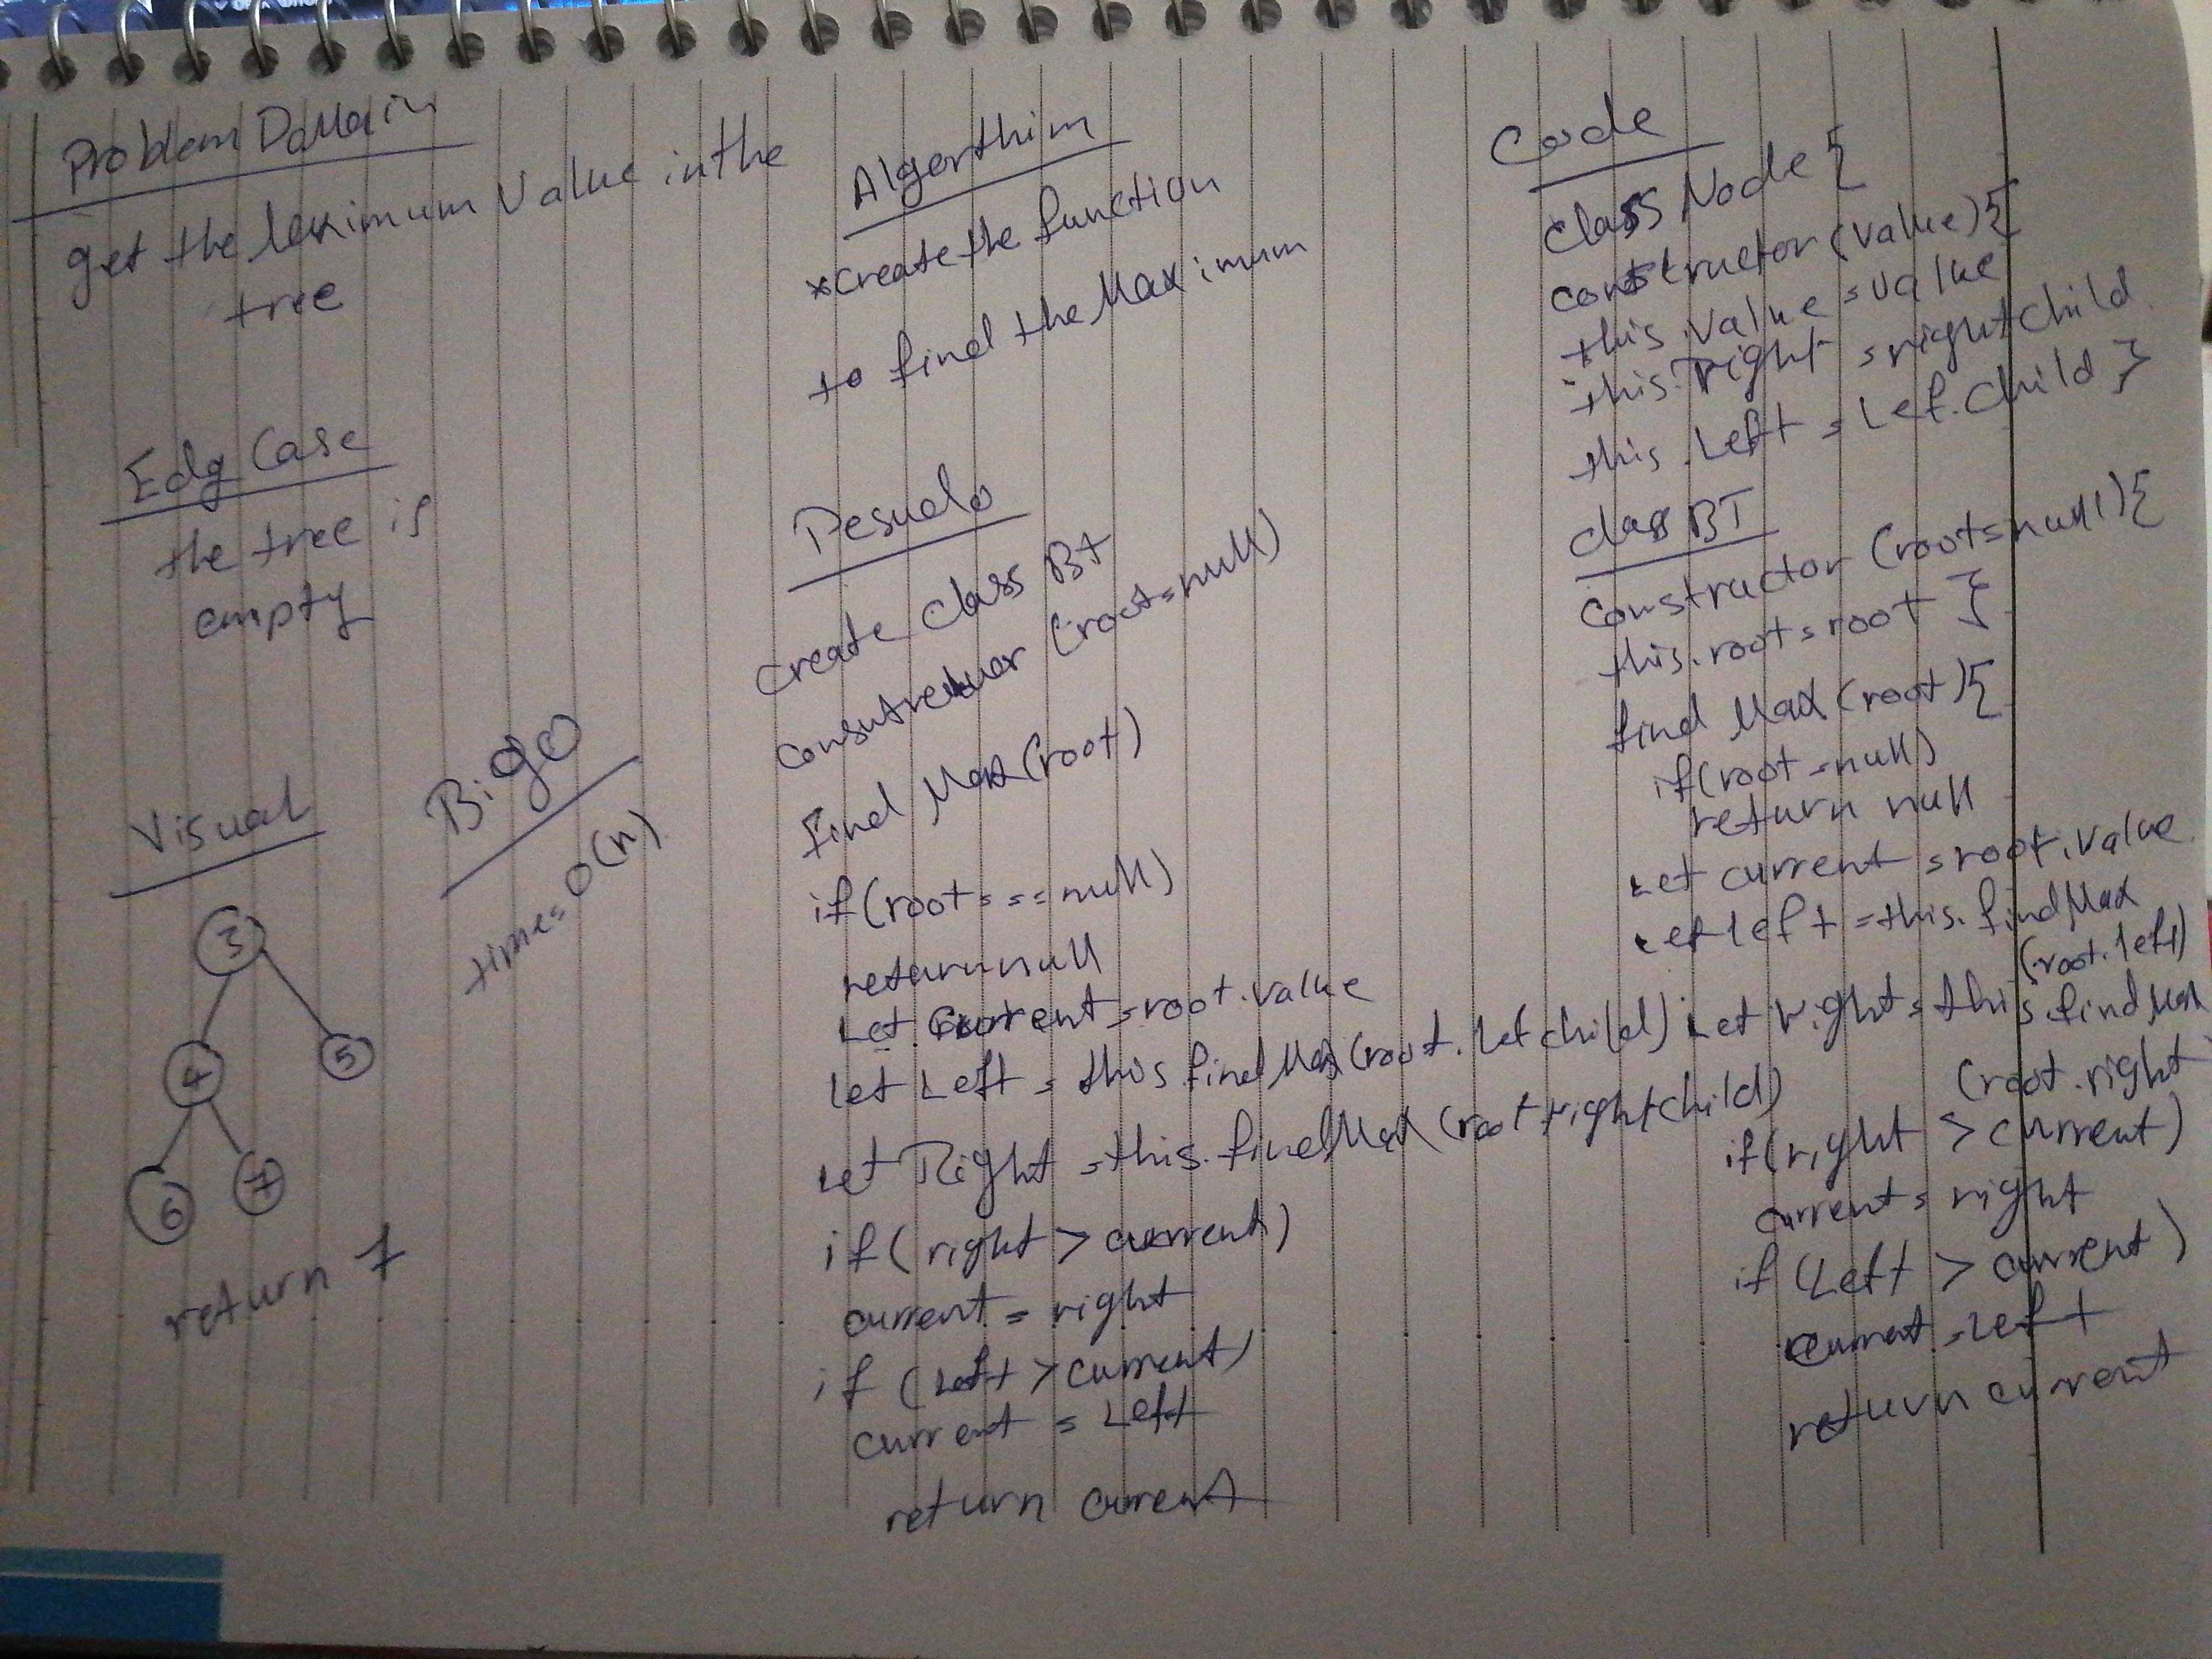 Problem Domain
get the maximum value in the
tree
Edg Case
the tree is
empty
Visual
3
4
5
6
7
return 7
Big O
time = O(n)
Algorthim
*create the function
to find the Maximum
Pesudo
create class Bt
(root=null)
Find Max(root)
if(root === null)
return null
Let current = root.value
let Left = this findMax(root.Leftchild)
Let Right = this.findMax(root rightchild)
if(right > current)
current = right
if (Left > current)
current = Left
return current
Code
class Node {
constructor(value){
this.value = value
this.right = rightchild
this.Left = Lef.child }
class BT
constructor (root=null){
this.root = root }
find Max(root){
if(root =null)
return null
Let current = root.value
Let left = this.findMax
(root.left)
Let right = this.findMax
(root.right
if(right > current)
current = right
if (Left > current)
current = Left
return current